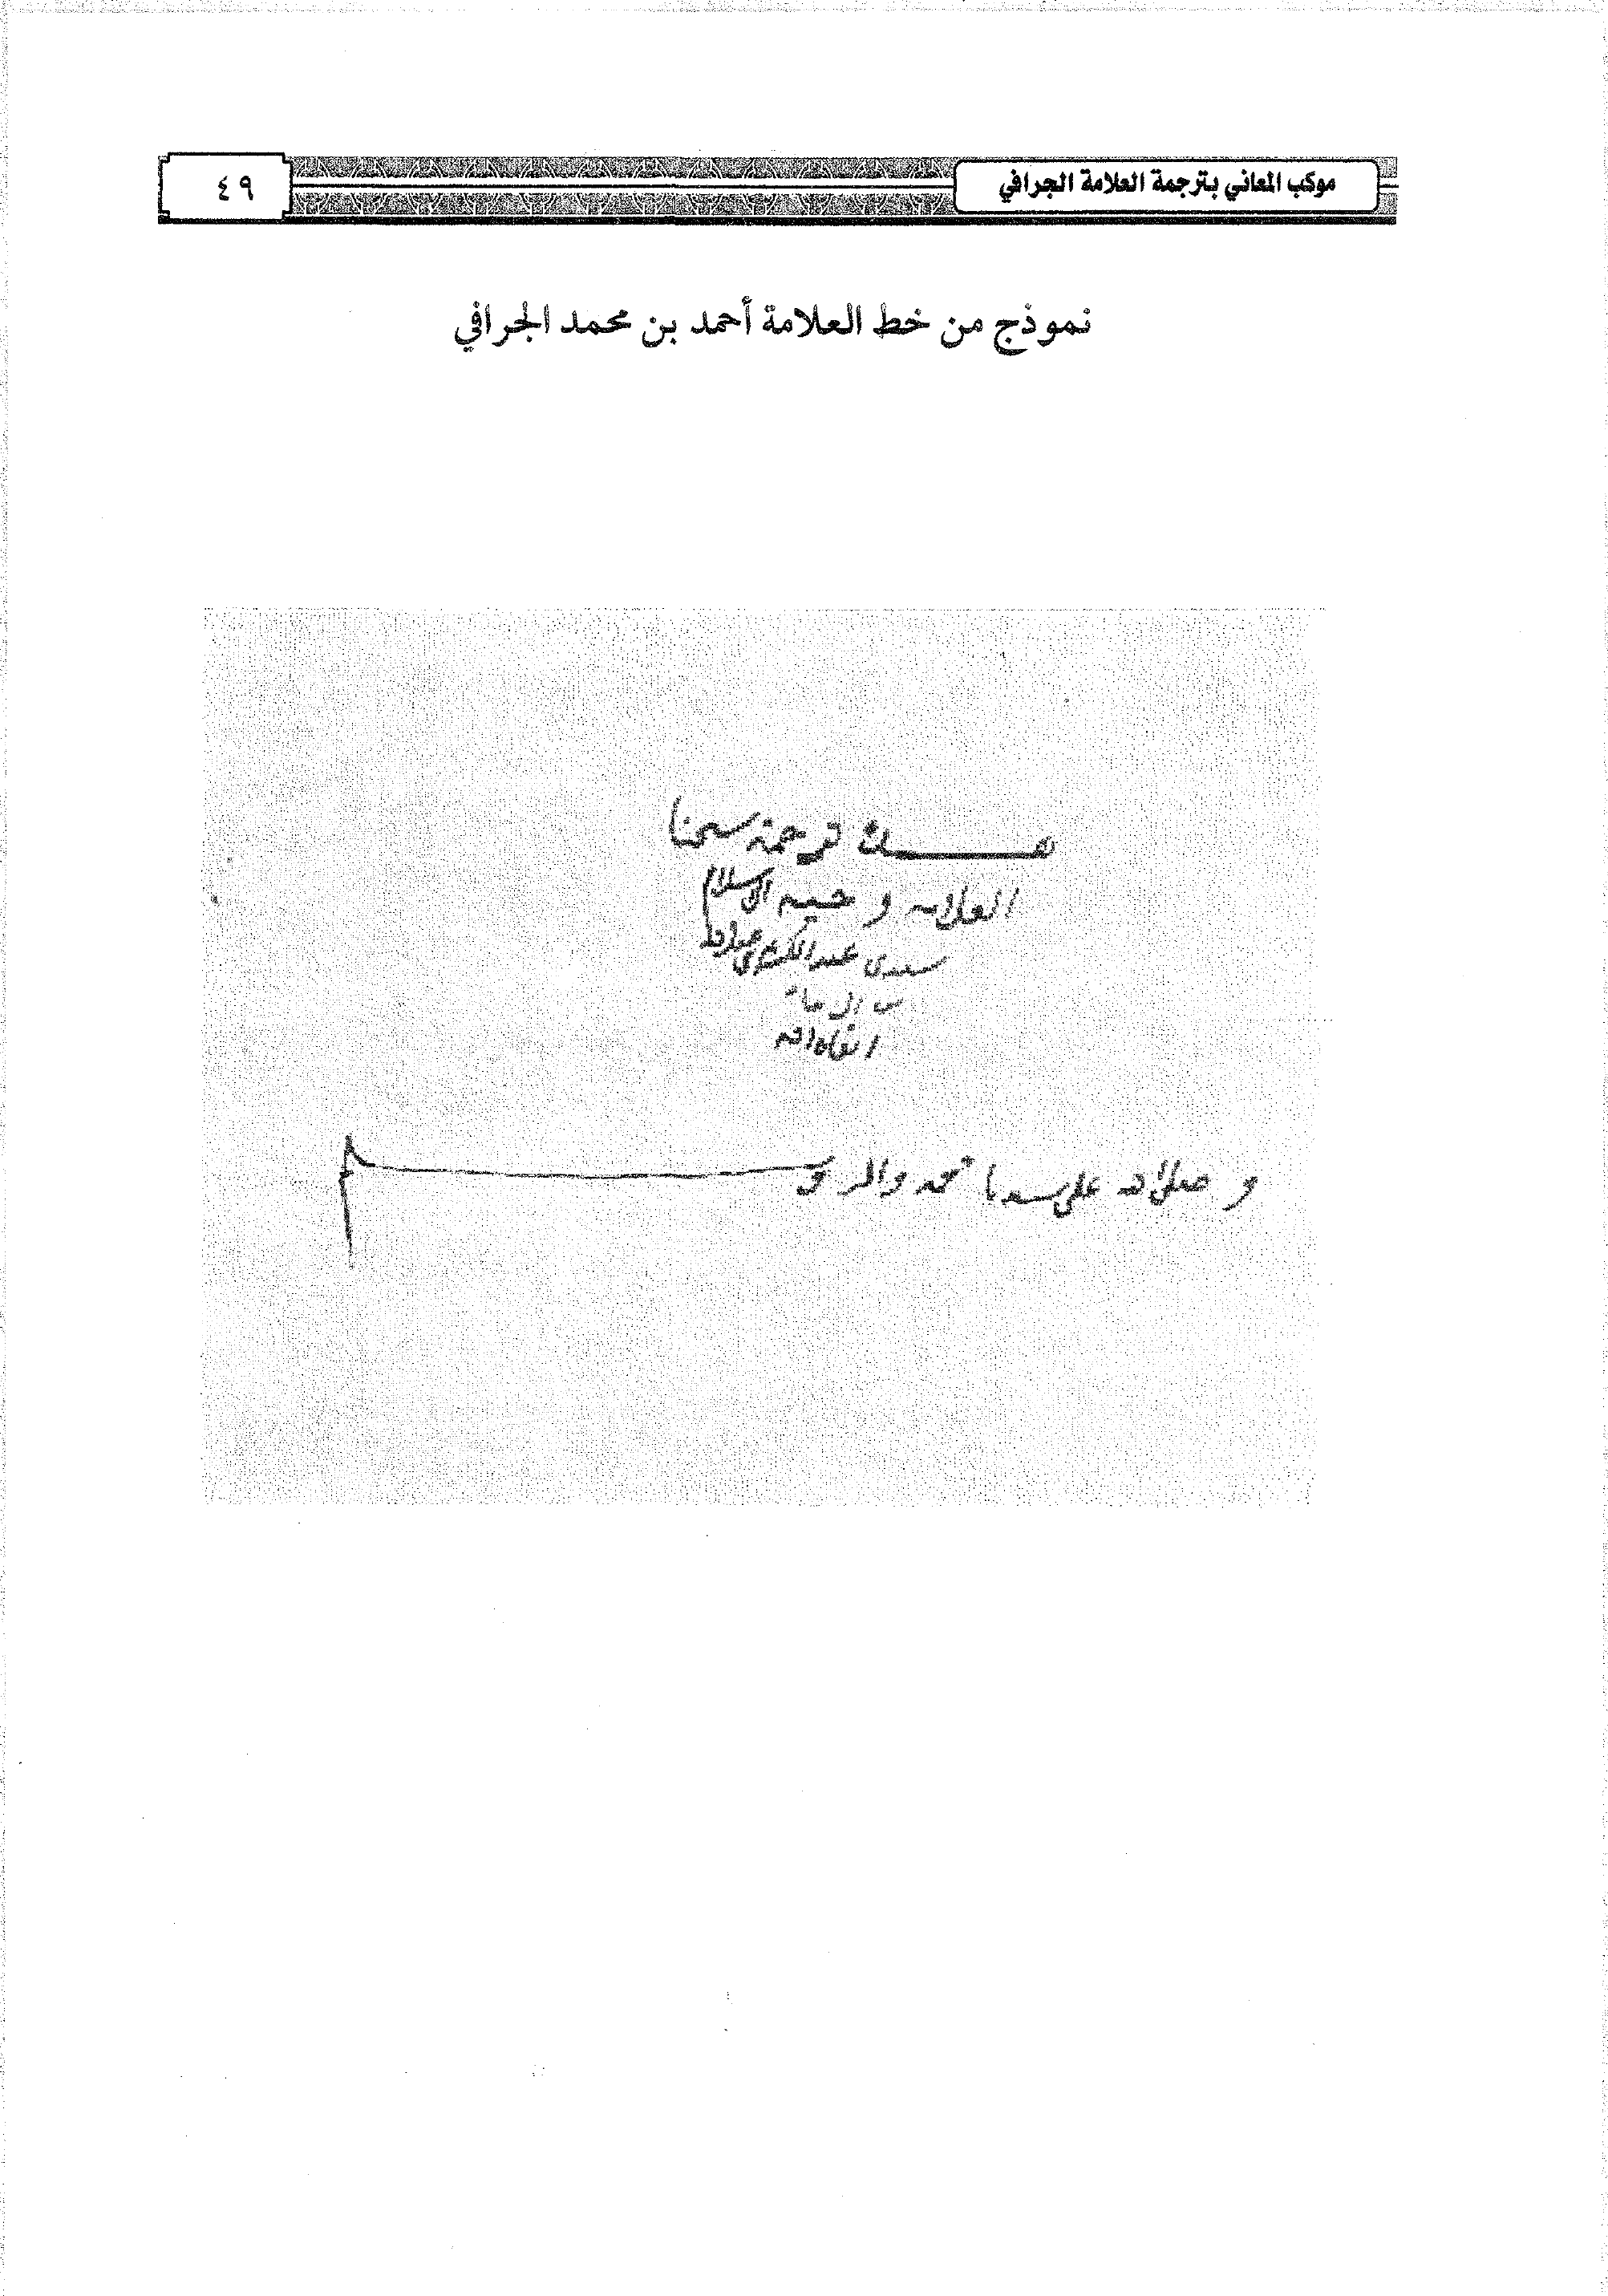 موكب المعاني بترجمة العلامة الجرافي
٤٩
نموذج من خط العلامة أحمد بن محمد الجرافي
هـــــذه ترجمة شيخنا
العلامه وجيه الاسلام
سيدي عبدالكريم
ابقاه الله
وصلى الله على سيدنا محمد واله و